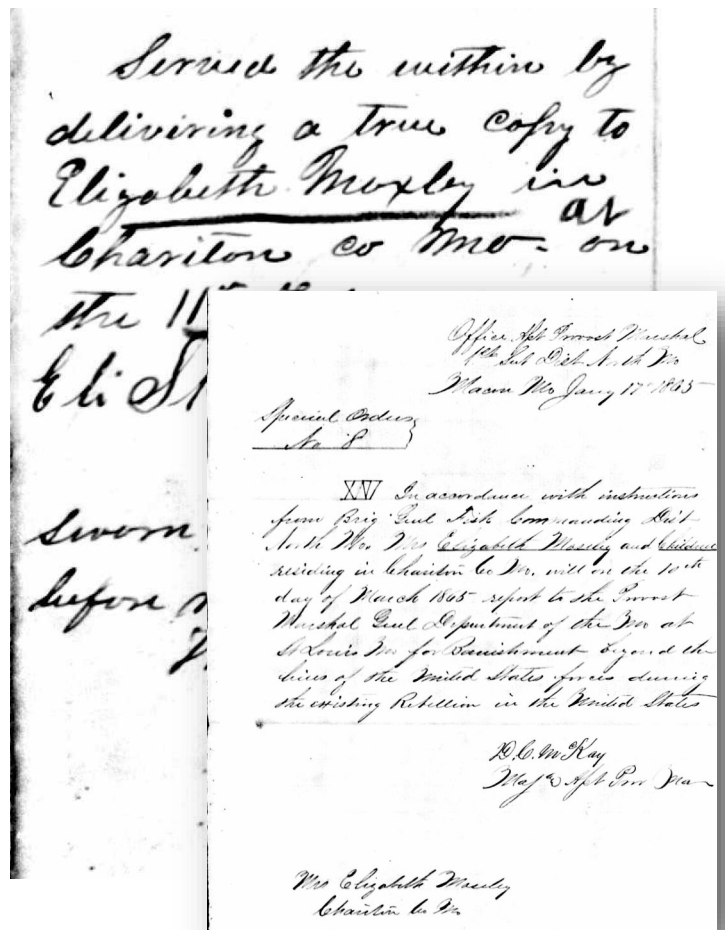 Served the within by
delivering a true copy to
Elizabeth Moxley in
at
Chariton co Mo - on
the 11th
Eli
Sworn
before
Office Asst Provost Marshal
1st Sub Dist North Mo
Macon Mo Jany 17th 1865
Special Orders
No 8
XVI In accordance with instructions
from Brig Genl Fisk Commanding Dist
North Mo. Mrs Elizabeth Moseley and Children
residing in Chariton Co Mo. will on the 10th
day of March 1865 report to the Provost
Marshal Genl Department of the Mo at
St Louis Mo for Banishment beyond the
lines of the United States forces during
the existing Rebellion in the United States
D. C. McKay
Maj & Asst Prov Mar
Mrs Elizabeth Moseley
Chariton Co Mo